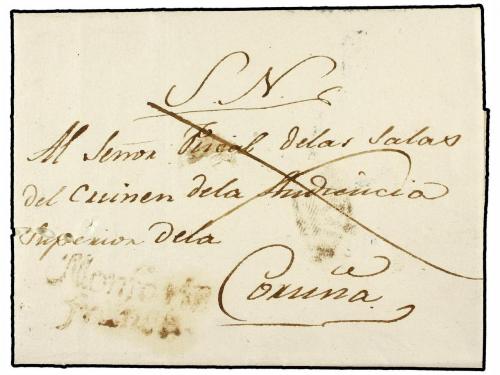 S. N.
Al Señor Fiscal delas Salas
del Crimen dela Audiencia
Superior dela
Coruña.
Monforte